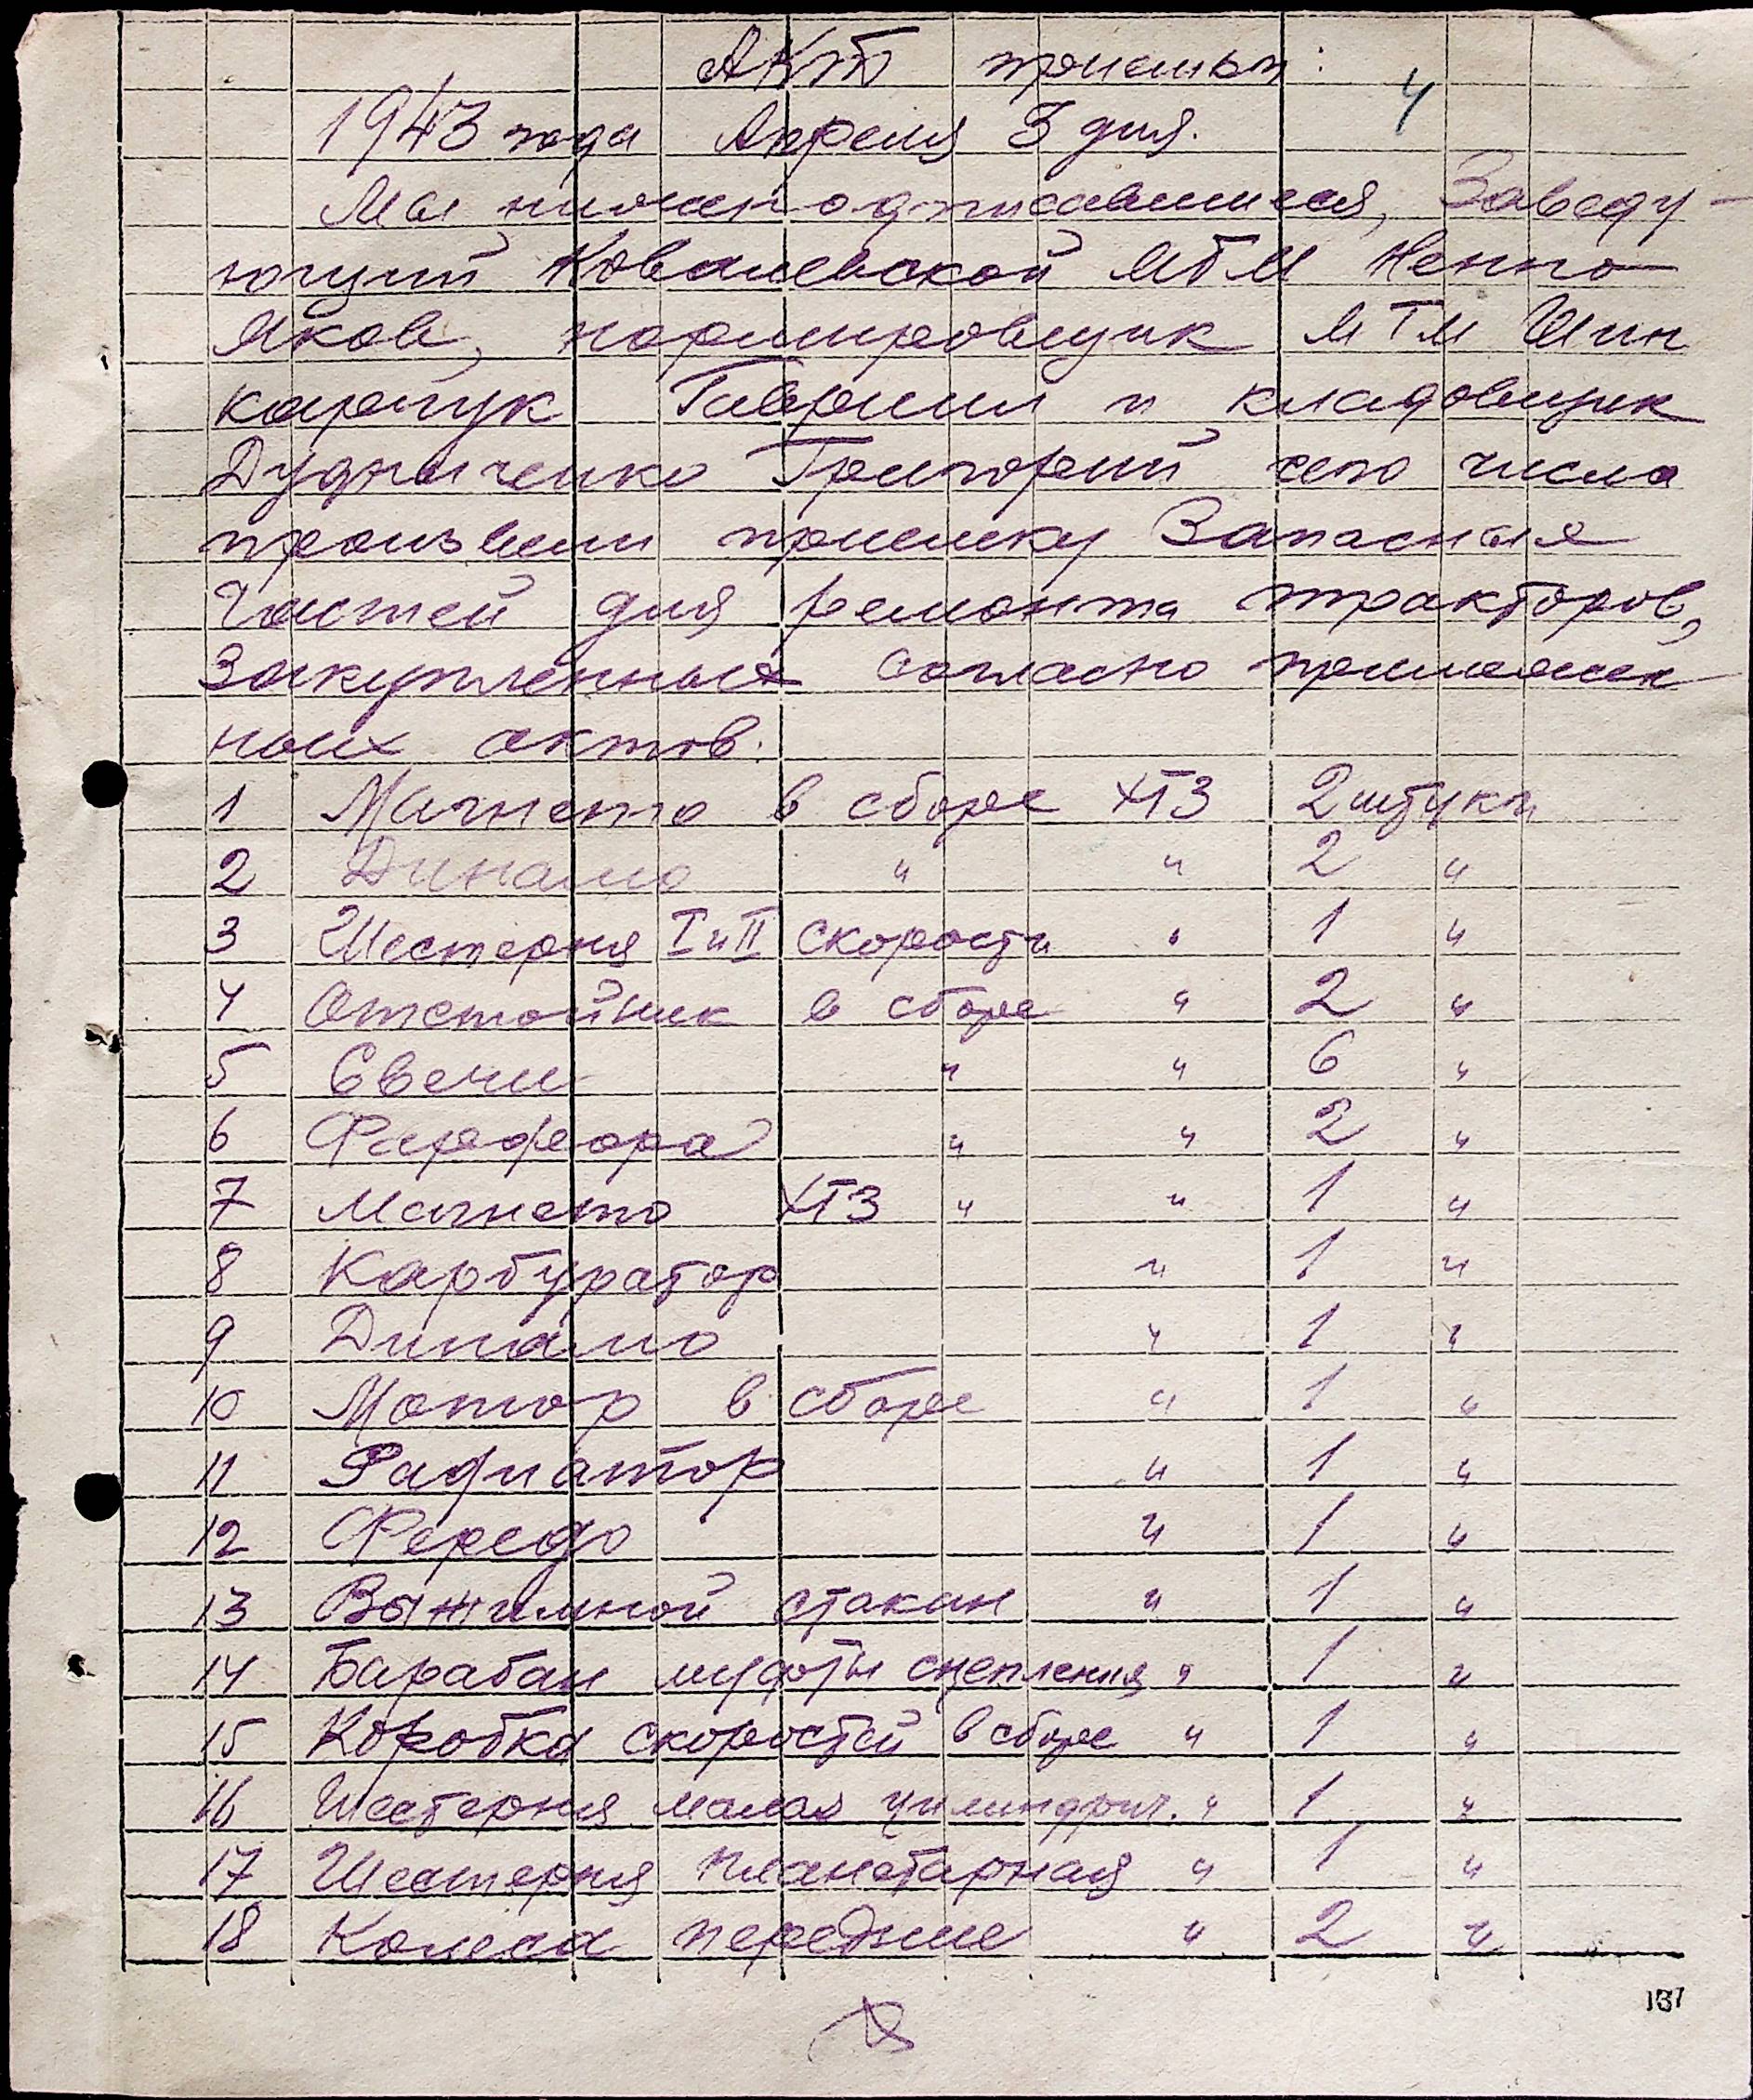 Акт приемки:
4
1943 года Апреля 3 дня.
Мы нижеподписавшиеся, Заведу-
ющий Ковалевской МТМ Ненно
Яков, нормировщик МТМ Шин
карчук Гавриил и кладовщик
Дудниченко Григорий сего числа
произвели приемку Запасных
Частей для ремонта тракторов,
Закупленных согласно приложен
ных актов.
1 Магнето в сборе ХТЗ 2 штуки
2 Динамо " " 2 "
3 Шестерня I и II скорости " 1 "
4 Отстойник в сборе " 2 "
5 Свечи " " 6 "
6 Фарфора " " 2 "
7 Магнето ХТЗ " " 1 "
8 Карбуратор " 1 "
9 Динамо " 1 "
10 Мотор в сборе " 1 "
11 Радиатор " 1 "
12 Фередо " 1 "
13 Выжимной стакан " 1 "
14 Барабан муфты сцепления " 1 "
15 Коробка скоростей в сборе " 1 "
16 Шестерня малая цилиндрич. " 1 "
17 Шестерня планетарная " 1 "
18 Колеса передние " 2 "
137